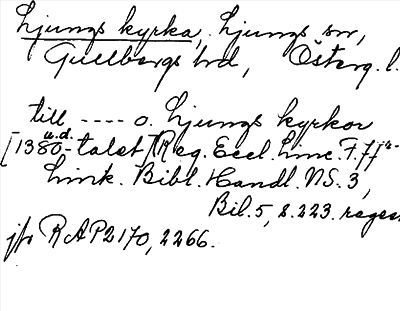 Ljungs kyrka, Ljungs sn,
Gullbergs hd, Österg. l.
till ---- o. Ljungs kyrkor
u.d.
[1380-talet] (Reg. Eccl. Linc. F. f)
Link. Bibl. Handl. NS. 3,
Bil. 5, s. 223. regest
jfr RAP 2170, 2266.